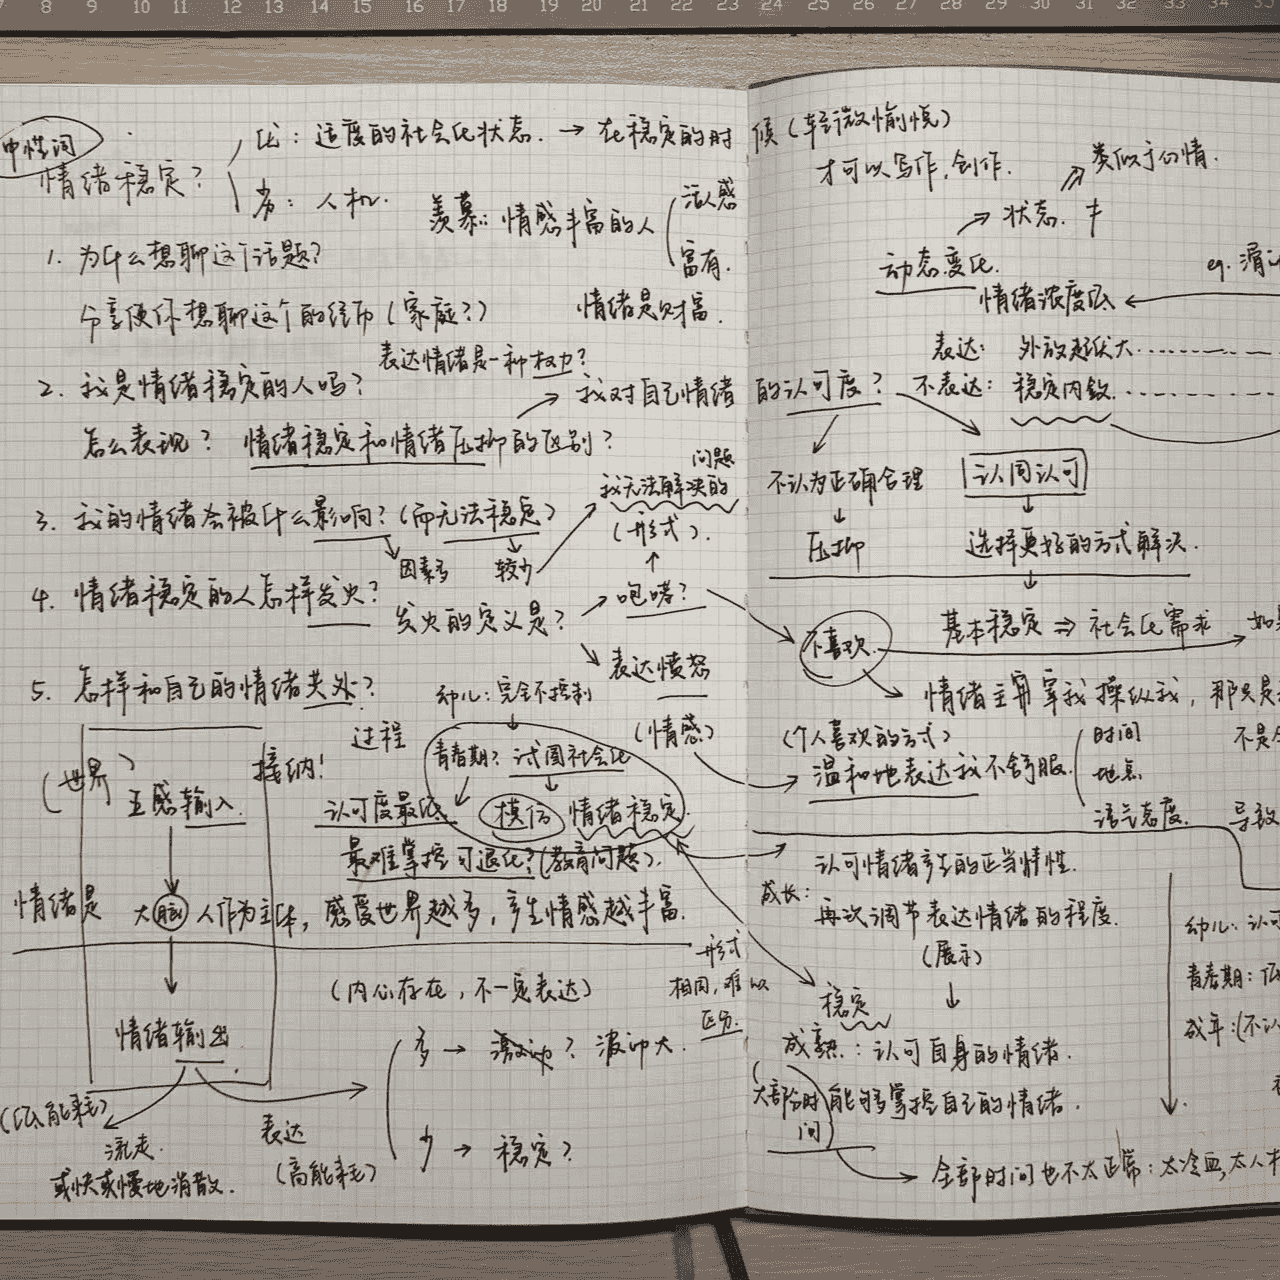 7 8 9 10 11 12 13 14 15 16 17 18 19 20 21 22 23 24 25 26 27 28 29 30 31 32 33 34 35
中性词
情绪稳定?
优: 适度的社会化状态. → 在稳定的时候(轻微愉悦)
才可以写作,创作.
劣: 人机.
羡慕: 情感丰富的人
活人感
富有.
情绪是财富.
1. 为什么想聊这个话题?
分享使你想聊这个的经历(家庭?)
表达情绪是一种权力?
2. 我是情绪稳定的人吗?
怎么表现? 情绪稳定和情绪压抑的区别?
→ 我对自己情绪的认可度?
3. 我的情绪会被什么影响?(而无法稳定)
因素多
较少
问题
我无法解决的
(形式).
4. 情绪稳定的人怎样发火?
发火的定义是?
→ 咆哮?
表达愤怒
(情感)
5. 怎样和自己的情绪共处?
过程
接纳!
(世界)
五感输入
情绪是 大脑 人作为主体, 感受世界越多, 产生情感越丰富.
幼儿: 完全不控制
青春期? 试图社会化
模仿 情绪稳定.
认可度最低
最难掌控可退化?(教育问题).
情绪输出
(低能耗)
流走.
或快或慢地消散.
表达
(高能耗)
(内心存在, 不一定表达)
多 → 激动? 波动大.
少 → 稳定?
形式
相同, 难以
区分.
类似于心情.
→ 状态.
动态变化.
情绪浓度低 ←
eg.
表达: 外放起伏大
不表达: 稳定内敛
不认为正确合理
↓
压抑
认同认可
选择更好的方式解决.
基本稳定 ⇒ 社会化需求
不喜欢.
→ 情绪主宰我操纵我, 那只是
(个人喜欢的方式)
→ 温和地表达我不舒服.
时间
地点
语气态度.
不是
导致
认可情绪产生的正当情性.
成长:
再次调节表达情绪的程度.
(展示)
稳定
成熟: 认可自身的情绪.
大部分时间 能够掌控自己的情绪.
→ 全部时间也不太正常: 太冷血,太人机
幼儿: 认可
青春期: 低
成年: